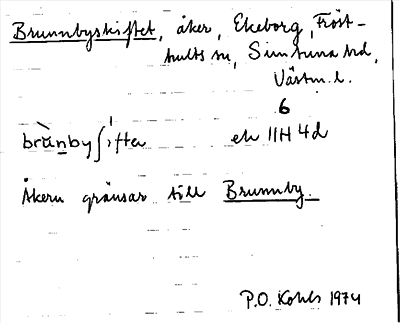 Brunnbyskiftet, åker, Ekeborg, Fröst-
hults sn, Simtuna hd,
Västm. l.
6
brùnby∫ìfta ek 11H 4d
Åkern gränsar till Brunnby.
P.O. Kohls 1974